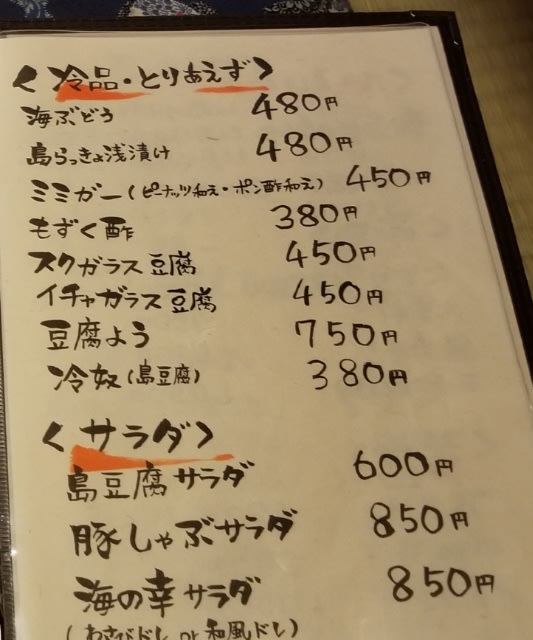 <冷品・とりあえず>
海ぶどう 480円
島らっきょ浅漬け 480円
ミミガー(ピーナッツ和え・ポン酢和え) 450円
もずく酢 380円
スクガラス豆腐 450円
イチャガラス豆腐 450円
豆腐よう 750円
冷奴(島豆腐) 380円
<サラダ>
島豆腐サラダ 600円
豚しゃぶサラダ 850円
海の幸サラダ 850円
(わさびドレ or 和風ドレ)